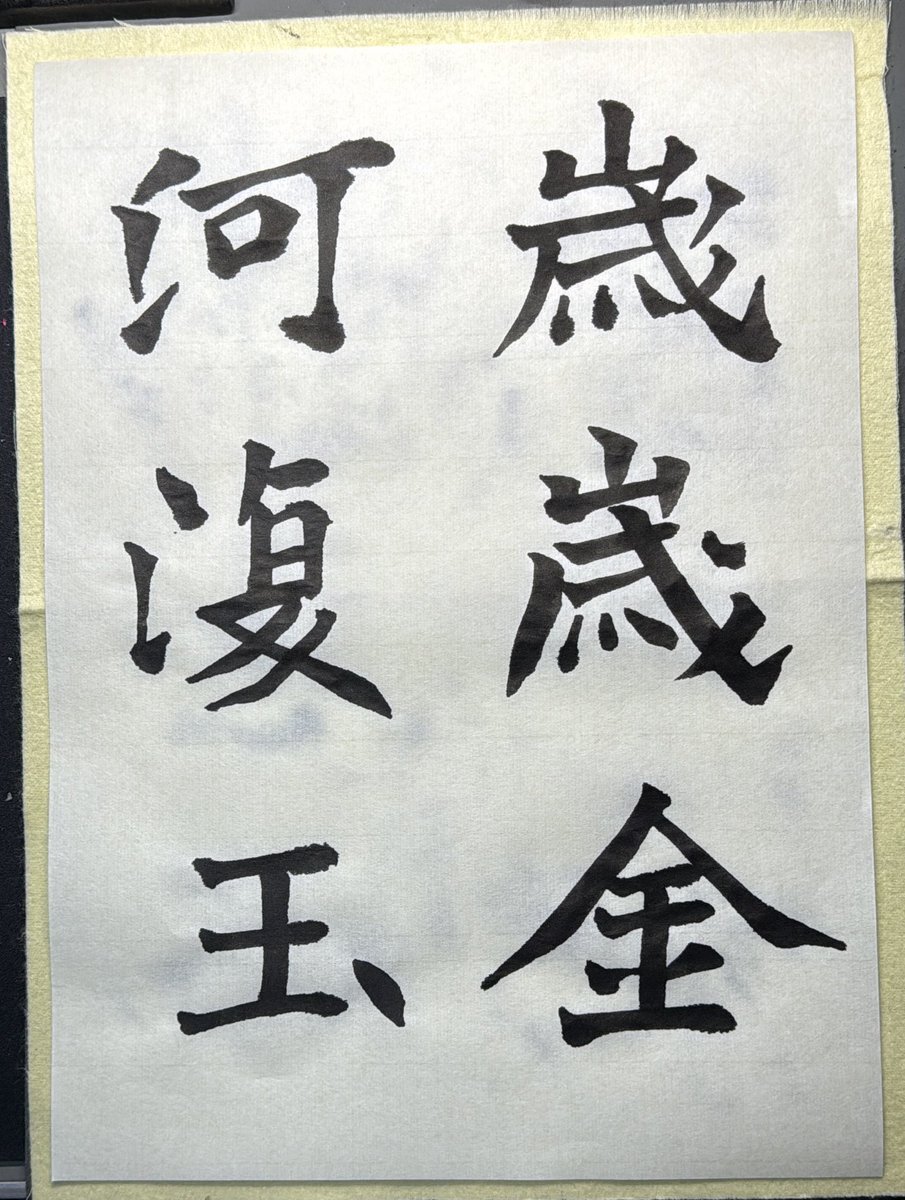 歳歳金
河復玉